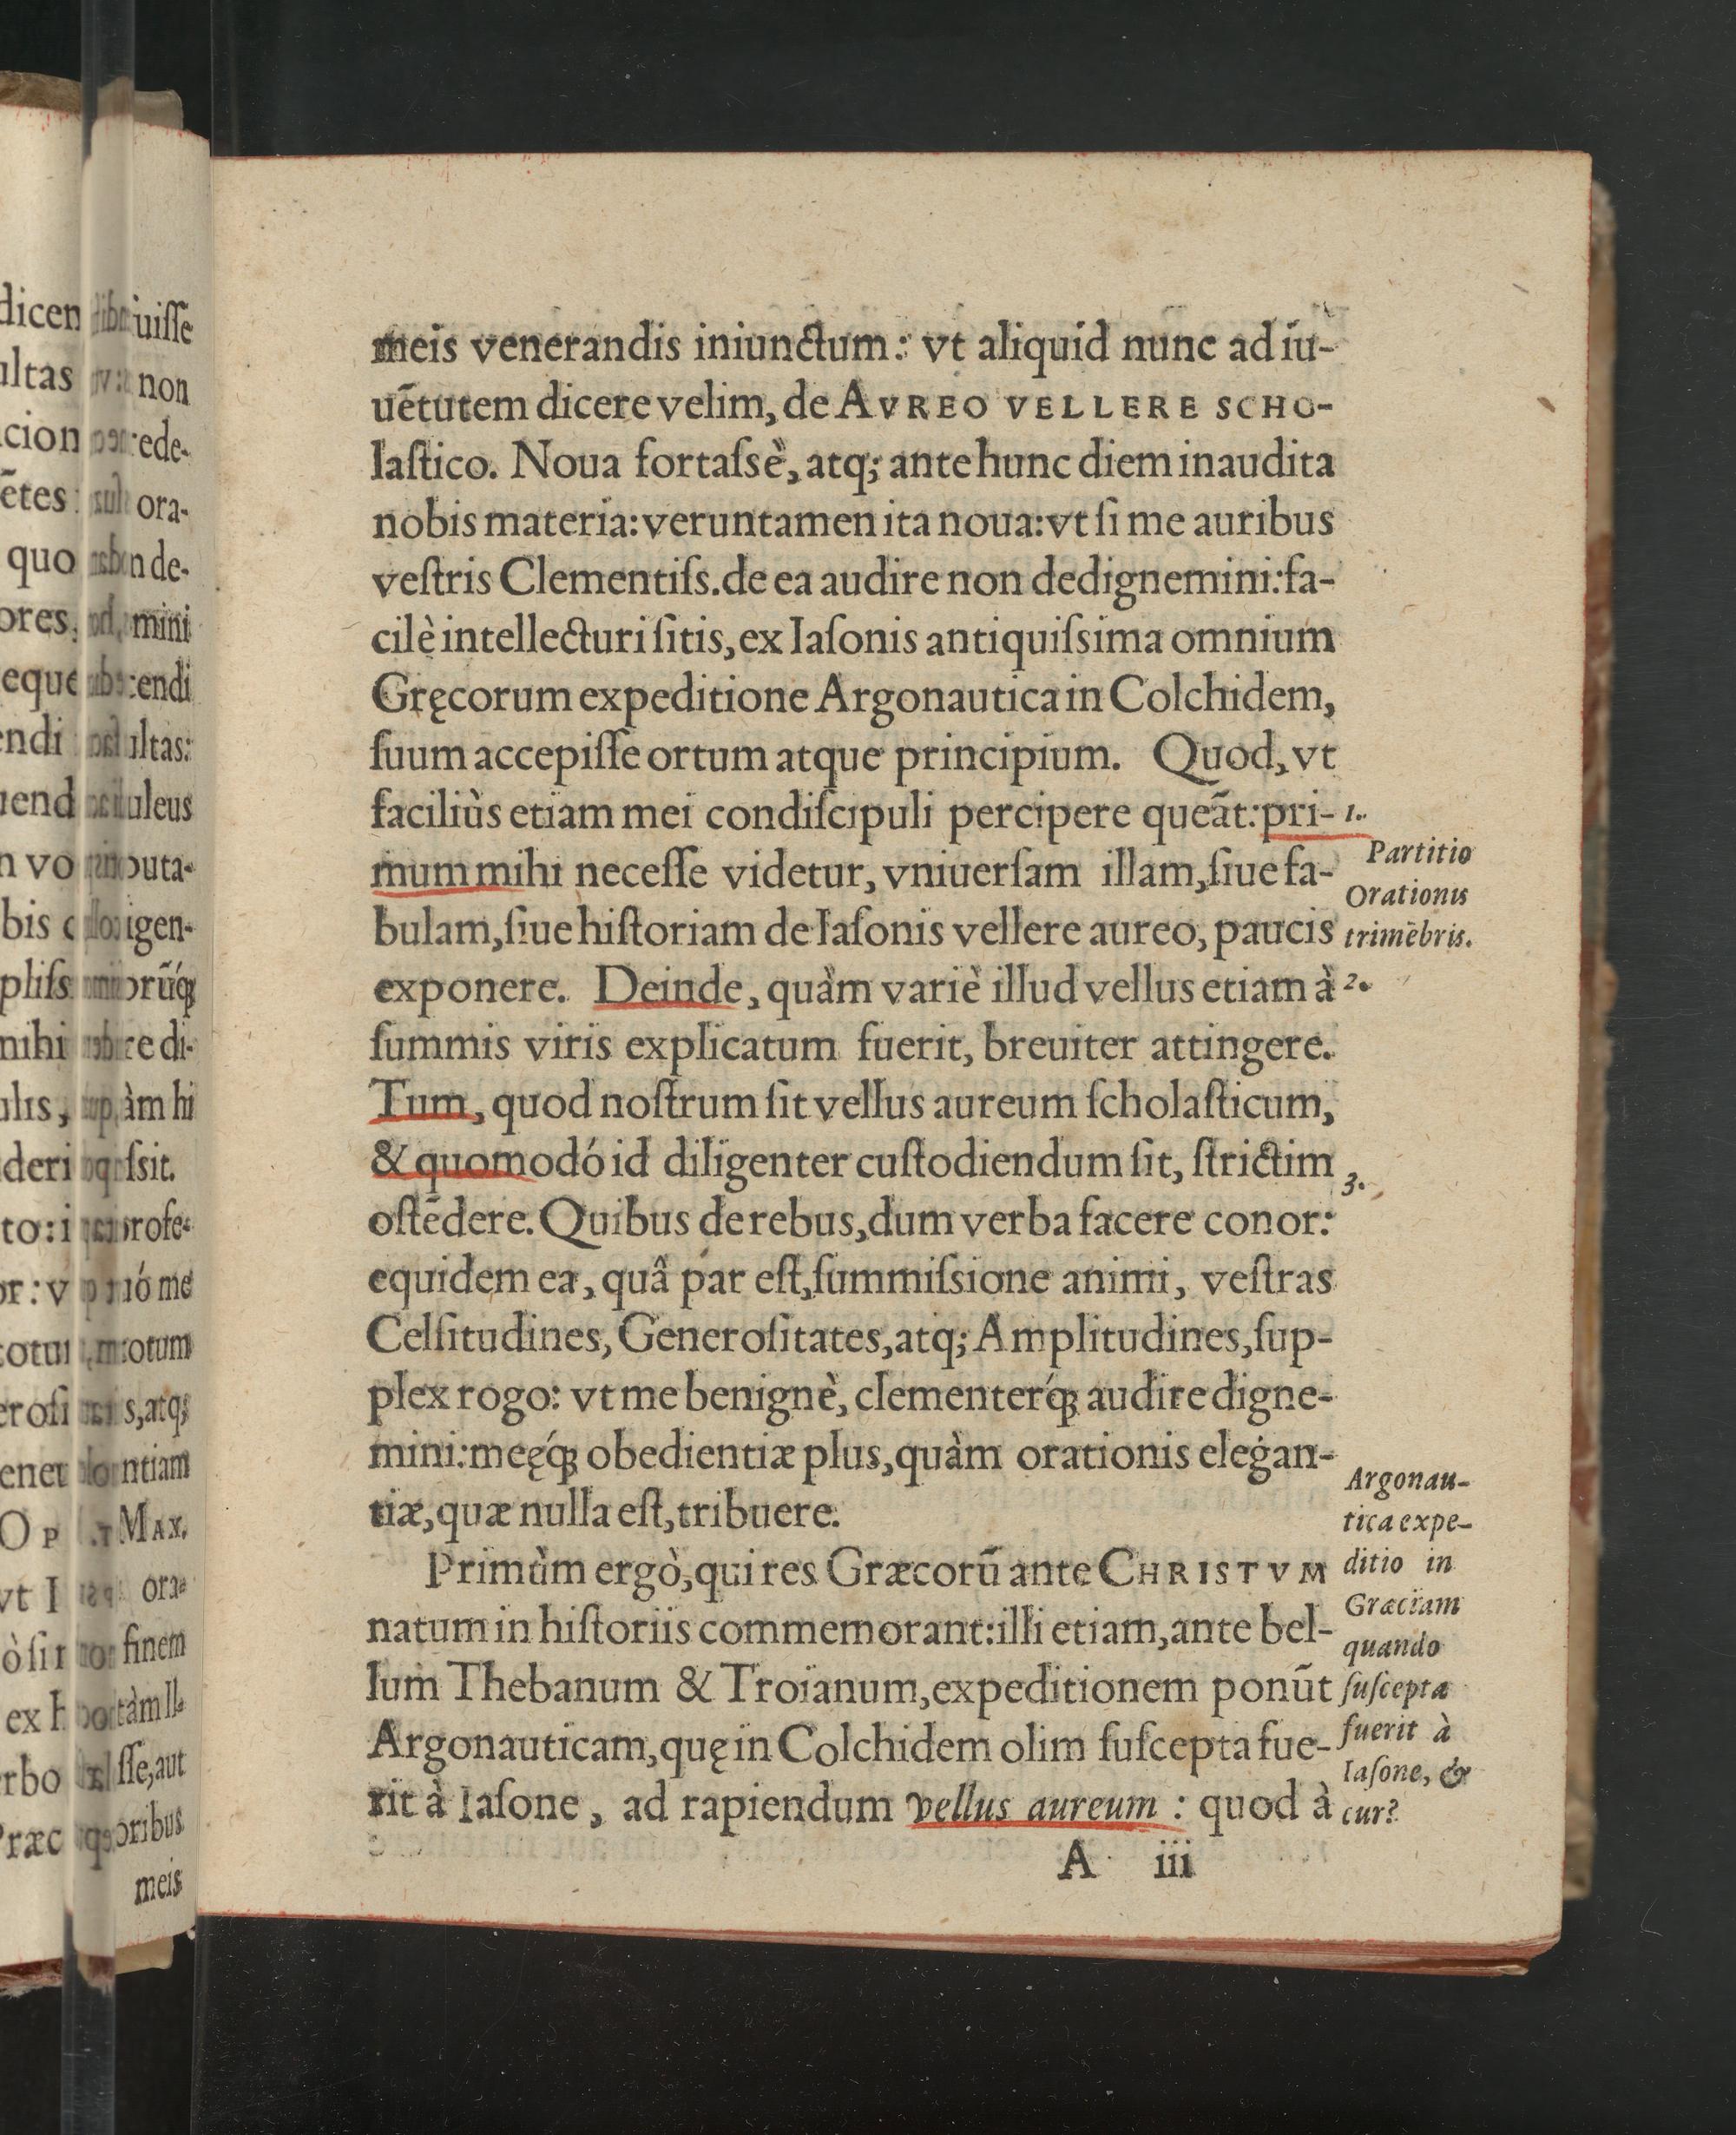 meis venerandis iniunctum: vt aliquid nunc ad iu-
uētutem dicere velim, de AVREO VELLERE SCHO-
laſtico. Noua fortaſsè, atq; ante hunc diem inaudita
nobis materia: veruntamen ita noua: vt ſi me auribus
veſtris Clementiſs. de ea audire non dedignemini: fa-
cilè intellecturi ſitis, ex Iaſonis antiquiſsima omnium
Gręcorum expeditione Argonautica in Colchidem,
ſuum accepiſſe ortum atque principium. Quod, vt
faciliùs etiam mei condiſcipuli percipere queāt: pri-
mum mihi neceſſe videtur, vniuerſam illam, ſiue fa-
bulam, ſiue hiſtoriam de Iaſonis vellere aureo, paucis
exponere. Deinde, quàm variè illud vellus etiam à
ſummis viris explicatum fuerit, breuiter attingere.
Tum, quod noſtrum ſit vellus aureum ſcholaſticum,
& quomodó id diligenter cuſtodiendum ſit, ſtrictim
oſtēdere. Quibus de rebus, dum verba facere conor:
equidem ea, quâ par eſt, ſummiſsione animi, veſtras
Celſitudines, Generoſitates, atq; Amplitudines, ſup-
plex rogo: vt me benignè, clementerq́; audire digne-
mini: meęq́; obedientiæ plus, quàm orationis elegan-
tiæ, quæ nulla eſt, tribuere.
Primùm ergò, qui res Græcorū ante CHRISTVM
natum in hiſtoriis commemorant: illi etiam, ante bel-
lum Thebanum & Troianum, expeditionem ponūt
Argonauticam, quę in Colchidem olim ſuſcepta fue-
rit à Iaſone, ad rapiendum vellus aureum: quod à
A iii
1.
Partitio
Orationis
trimēbris.
2.
3.
Argonau-
tica expe-
ditio in
Græciam
quando
ſuſcepta
fuerit à
Iaſone, &
cur?
dicen
ultas
quo
eque
uiſſe
non
ede-
ora-
de-
mini
cendi
ultas:
uleus
puta-
igen-
re di-
àm hi
ſsit.
rofe-
me
otum
s, atq;
ntiam
MAX.
ora-
finem
tàm Il-
ſſe, aut
oribus
meis